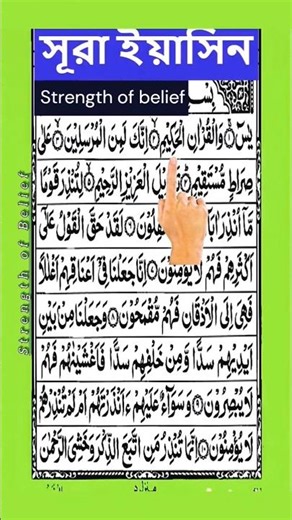 সূরা ইয়াসিন
Strength of belief
يٰسٓ ۚ وَالْقُرْاٰنِ الْحَكِيْمِ ۙ اِنَّكَ لَمِنَ الْمُرْسَلِيْنَ ۙ عَلٰى
صِرَاطٍ مُّسْتَقِيْمٍ ؕ الْعَزِيْزِ الرَّحِيْمِ ۙ لِتُنْذِرَ قَوْمًا
مَّاۤ اُنْذِرَ لَقَدْ حَقَّ الْقَوْلُ عَلٰٓى
اَكْثَرِهِمْ فَهُمْ لَا يُؤْمِنُوْنَ اِنَّا جَعَلْنَا فِيْۤ اَعْنَاقِهِمْ اَغْلٰلًا
فَهِيَ اِلَى الْاَذْقَانِ فَهُمْ مُّقْمَحُوْنَ وَجَعَلْنَا مِنْۢ بَيْنِ
اَيْدِيْهِمْ سَدًّا وَّمِنْ خَلْفِهِمْ سَدًّا فَاَغْشَيْنٰهُمْ فَهُمْ
لَا يُبْصِرُوْنَ وَسَوَآءٌ عَلَيْهِمْ ءَاَنْذَرْتَهُمْ اَمْ لَمْ تُنْذِرْهُمْ
لَا يُؤْمِنُوْنَ اِنَّمَا تُنْذِرُ مَنِ اتَّبَعَ الذِّكْرَ وَخَشِيَ الرَّحْمٰنَ
Strength of Belief